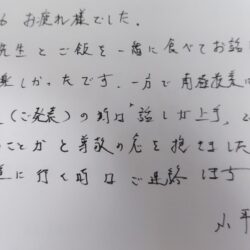 お疲れ様でした。
先生とご飯を一緒に食べてお話
楽しかったです。一方で
(ご発表)の時は話しが上手、
ことかと尊敬の念を抱きました
に行く時はご連絡
小平